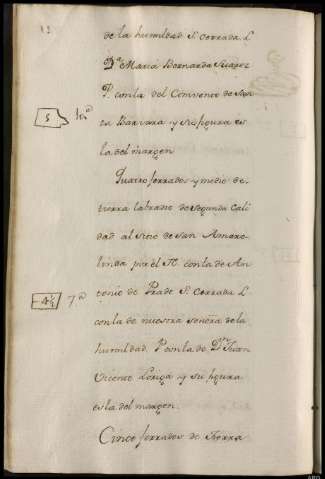 12
de la humildad S. cerrada L.
D.ª Maria Bernarda Suarez
P. con la del Comvento de San
5
ta Barvara y su figura es
la del margen
Quatro ferrados y medio de
tierra labradio de segunda Cali
dad al sitio de San Amaro
linda por el N. con la de An
4½
7ª
tonio de Prado S. cerrada L.
con la de nuestra señora de la
humildad. P. con la de D.n Juan
Vicente Loriga y su figura
es la del margen.
Cinco ferrados de tierra